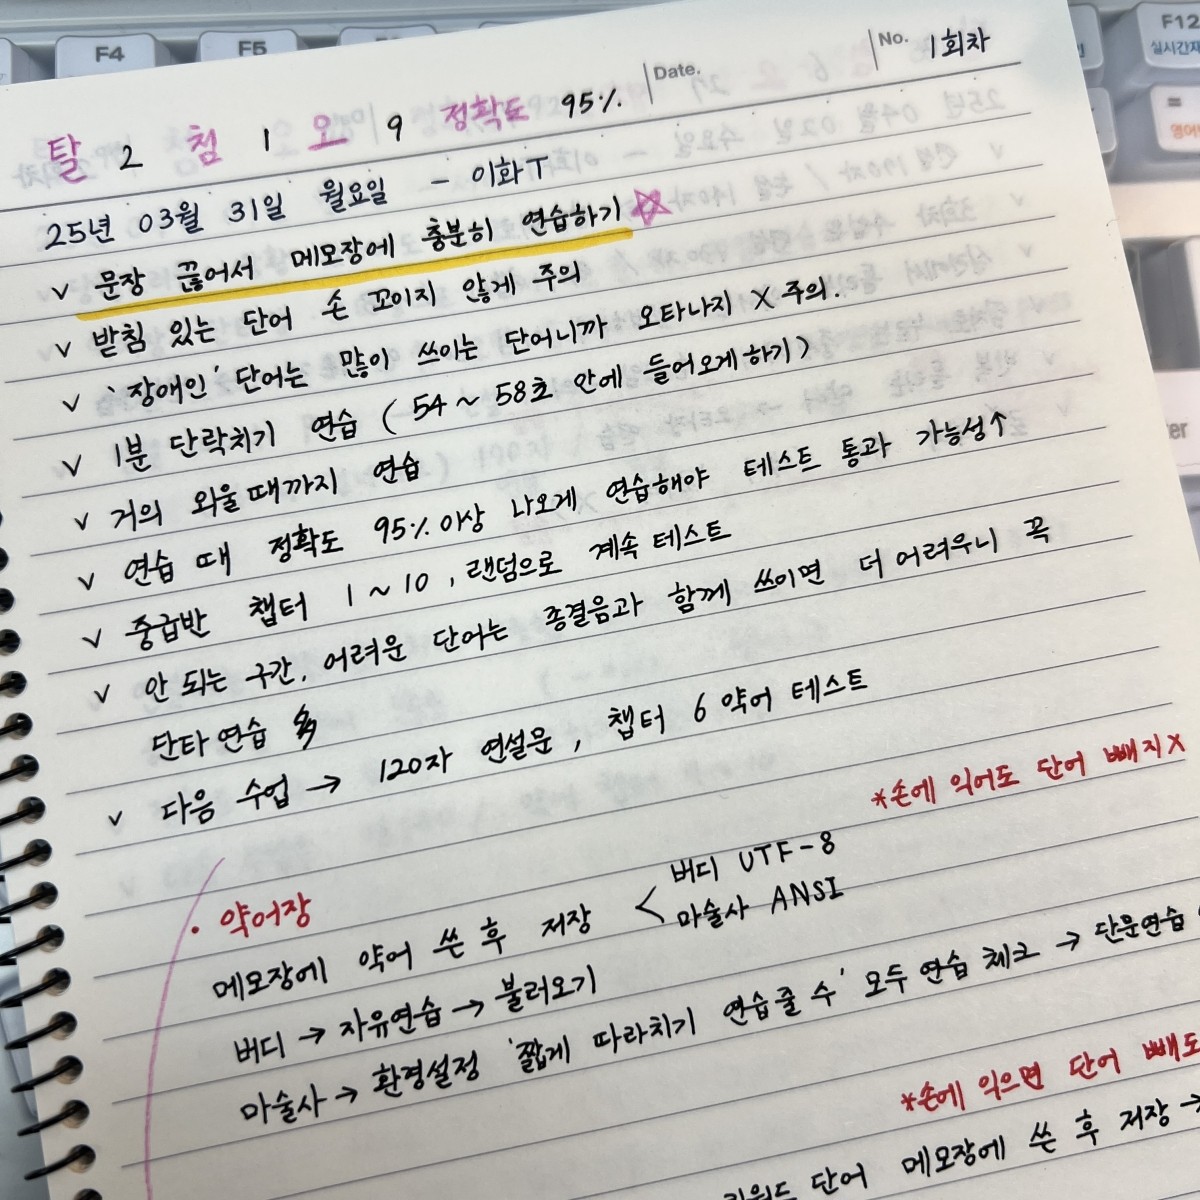 F4
F5
F12
실시간재
No. 1회차
Date.
탈 2 첨 1 오 9 정확도 95%
25년 03월 31일 월요일 - 이화T
v 문장 끊어서 메모장에 충분히 연습하기 ☆
v 받침 있는 단어 손 꼬이지 않게 주의
v '장애인' 단어는 많이 쓰이는 단어니까 오타나지 X 주의.
v 1분 단락치기 연습 (54 ~ 58초 안에 들어오게하기)
v 거의 외울때까지 연습
v 연습 때 정확도 95% 이상 나오게 연습해야 테스트 통과 가능성↑
v 중급반 챕터 1 ~ 10, 랜덤으로 계속 테스트
v 안 되는 구간, 어려운 단어는 종결음과 함께 쓰이면 더 어려우니 꼭
단타 연습 多
v 다음 수업 → 120자 연설문, 챕터 6 약어 테스트
*손에 익어도 단어 빼지X
· 약어장
메모장에 약어 쓴 후 저장 < 버디 UTF-8
마술사 ANSI
버디 → 자유연습 → 불러오기
마술사 → 환경설정 '짧게 따라치기 연습줄 수' 모두 연습 체크 → 단문연습
*손에 익으면 단어 빼도
단어 메모장에 쓴 후 저장 →